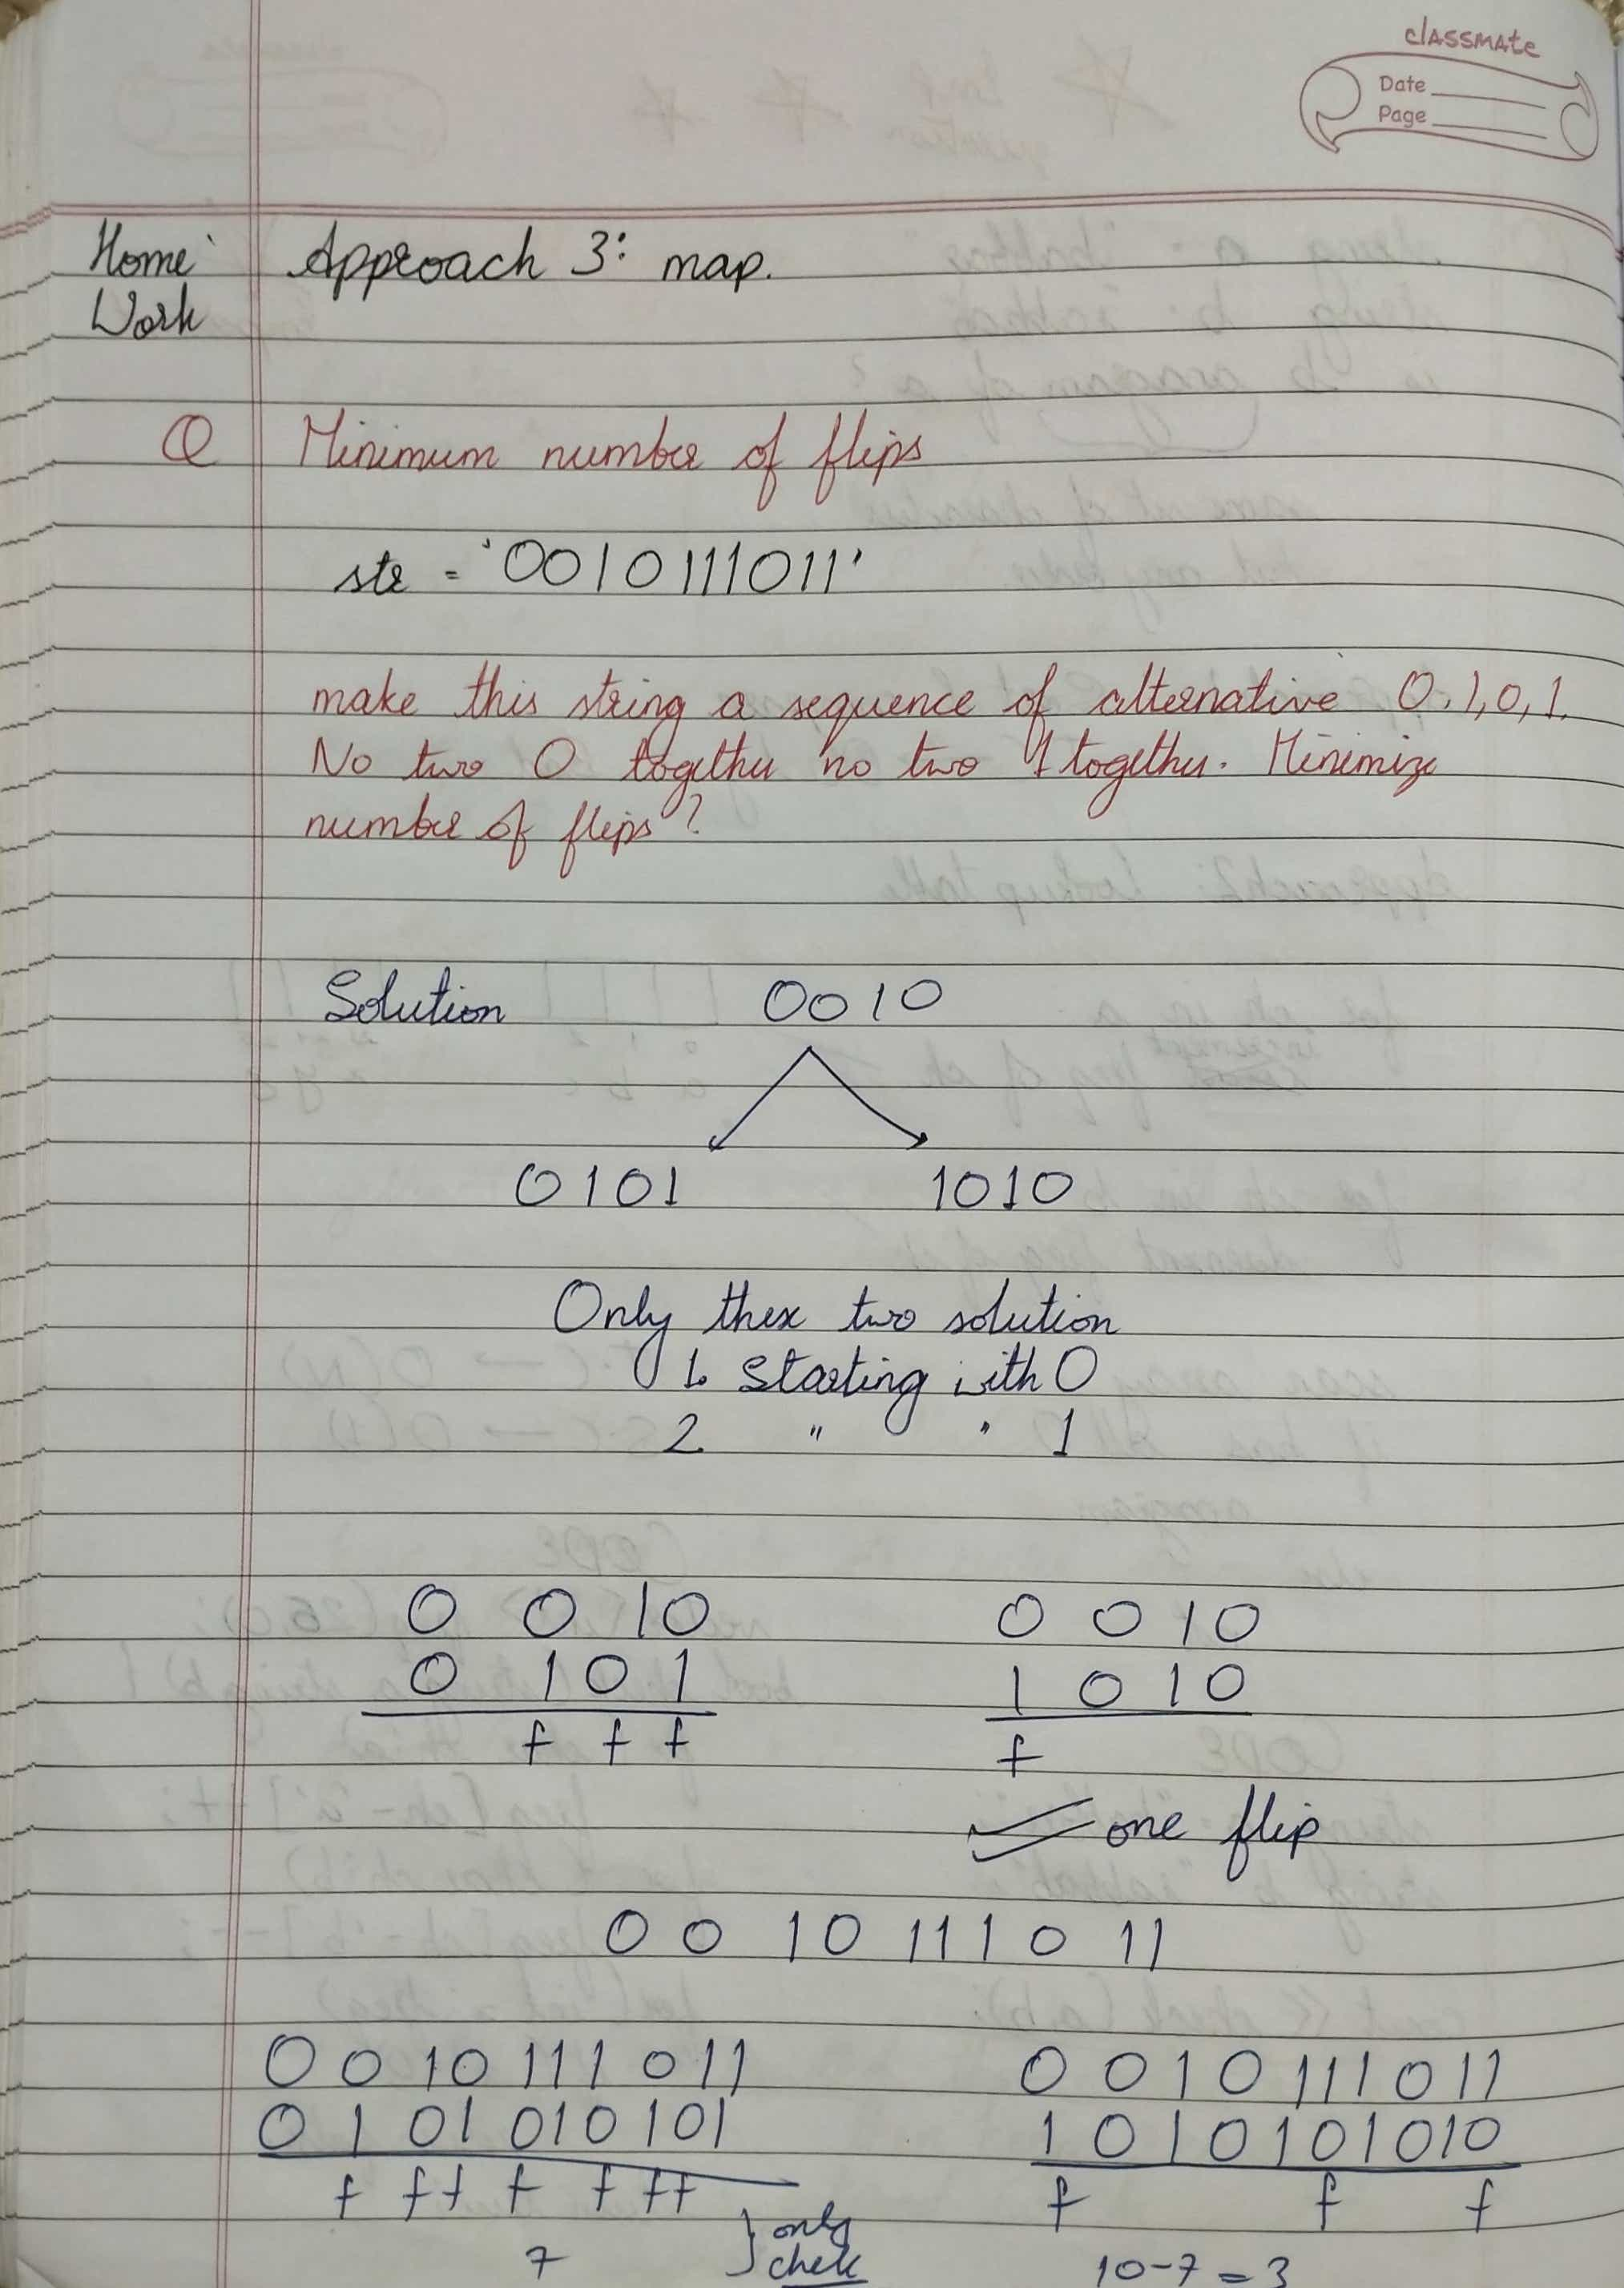 classmate
Date
Page
Home Approach 3: map.
Work
Q Minimum number of flips
str = '0010111011'
make this string a sequence of alternative 0,1,0,1.
No two 0 together no two 1 together. Minimize
number of flips?
Solution 0010
0101 1010
Only these two solution
1. Starting with 0
2 " " 1
0 0 1 0 0 0 1 0
0 1 0 1 1 0 1 0
f f f f
one flip
0 0 1 0 1 1 1 0 1 1
0 0 1 0 1 1 1 0 1 1 0 0 1 0 1 1 1 0 1 1
0 1 0 1 0 1 0 1 0 1 1 0 1 0 1 0 1 0 1 0
f f f f f f f f f f
} only
7 chek 10-7=3